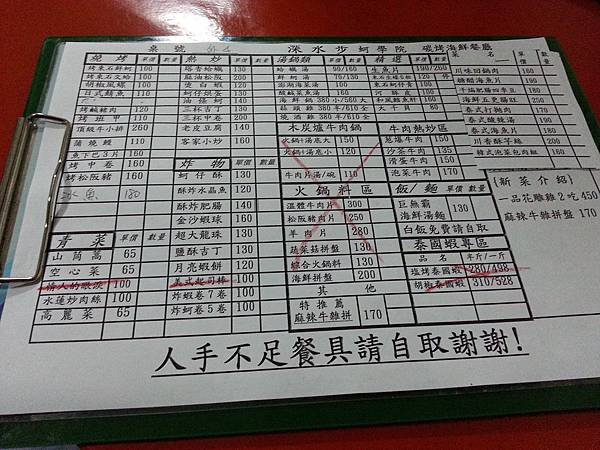 桌號 深水步蚵學院 碳烤海鮮餐廳
燒烤 單價 數量
烤東石鮮蚵
烤東石文蛤 100
胡椒風螺 100
日式鹹魚 110
烤鹹豬肉 120
烤班甲 110
頂級牛小排 260
蒲燒鰻
魚下巴3片 160
烤中卷 160
烤松阪豬 160
冰魚 180
青菜 單價 數量
山茼蒿 65
空心菜 65
情人的眼淚 100
水蓮炒肉絲 100
高麗菜 65
熱炒 單價 數量
塔香蛤蠣 130
麻油松阪 200
燙白蝦 200
蚵仔煎蛋 130
油條蚵 140
三杯杏丁
三杯中卷 200
老皮豆腐 140
客家小炒 160
炸物 單價 數量
蚵仔酥 130
酥炸水晶魚 120
酥炸肥腸 140
金沙蝦球 160
超大龍珠 130
鹽酥杏丁 130
月亮蝦餅 120
美式起司棒 100
炸蝦卷7卷 100
炸蚵卷5卷 100
湯鍋類 單價 數量
蛤蠣湯 90/110
鮮蚵湯 70/130
澎湖海菜湯 100
海鮮鍋 380小/560大
蒜頭雞 380半/610全
燒酒雞 380半/610全
木炭爐牛肉鍋
火鍋+湯底大 150
火鍋+湯底小 120
牛肉片湯/碗 110
火鍋料區
溫體牛肉片 300
松阪豬肉片 250
羊肉片 280
蔬菜菇拼盤 130
綜合火鍋料 130
海鮮拼盤 200
其他
特推薦
麻辣牛雜拼 170
精選 單價 數量
生魚片 190/260
120
100
100
大干貝
牛肉熱炒區
蔥爆牛肉 150
沙茶牛肉 150
滑蛋牛肉 150
泡菜牛肉 170
飯/麵 單價 數量
巨無霸
海鮮湯麵 130
白飯免費請自取
泰國蝦專區
品名 半斤/一斤
塩烤泰國蝦 280/498
胡椒泰國蝦 310/528
菜名 單價 數量
川味回鍋肉 160
糖醋海魚片 190
干煸肥腸四季豆 180
海鮮五更腸旺 250
泰式酸辣湯 190
泰式打拋肉 170
泰式海魚片 180
川香酥芋絲 200
韓式泡菜包肉組 160
【新菜介紹】
一品花雕雞2吃450
麻辣牛雜拼盤 170
人手不足餐具請自取謝謝!